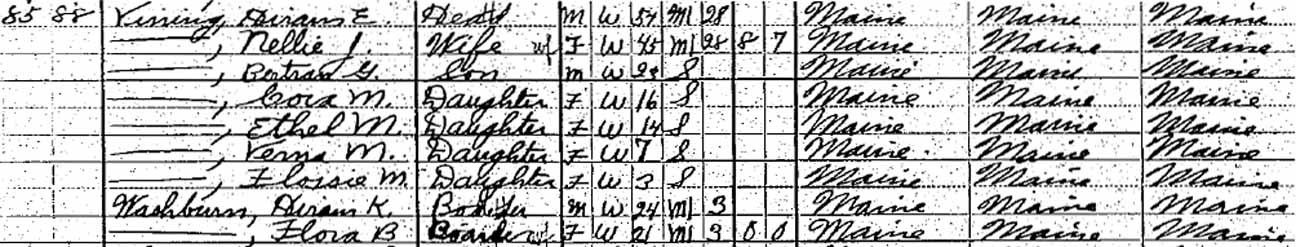 85 88 Vining, Hiram E. Head M W 54 M1 28 Maine Maine Maine
———, Nellie J. Wife F W 45 M1 28 8 7 Maine Maine Maine
———, Bertran G. Son M W 24 S Maine Maine Maine
———, Cora M. Daughter F W 16 S Maine Maine Maine
———, Ethel M. Daughter F W 14 S Maine Maine Maine
———, Verna M. Daughter F W 7 S Maine Maine Maine
———, Flossie M. Daughter F W 3 S Maine Maine Maine
Washburn, Hiram K. Boarder M W 24 M1 3 Maine Maine Maine
———, Flora B Boarder F W 21 M1 3 0 0 Maine Maine Maine